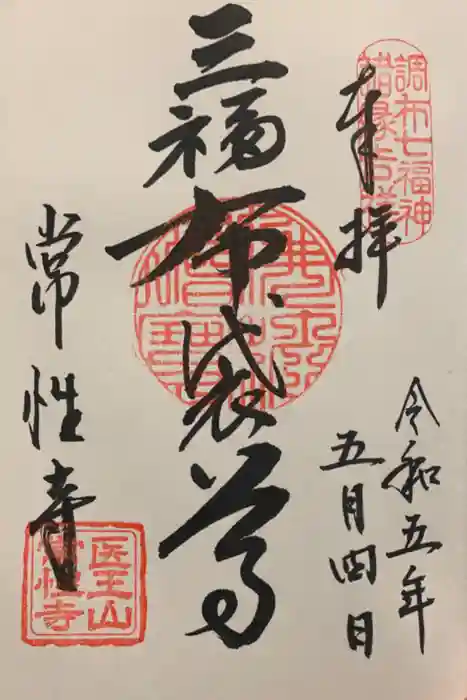 奉拝
調布七福神
令和五年
五月四日
三福布袋尊
佛法僧寶
常性寺
医王山
常性寺